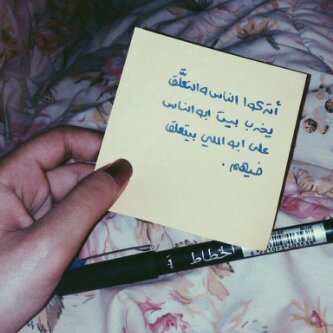 أتركوا الناس والتعلَّق
يخرب بيت ابو الناس
على ابو اللي بيتعلق
فيهم .
الخطاط